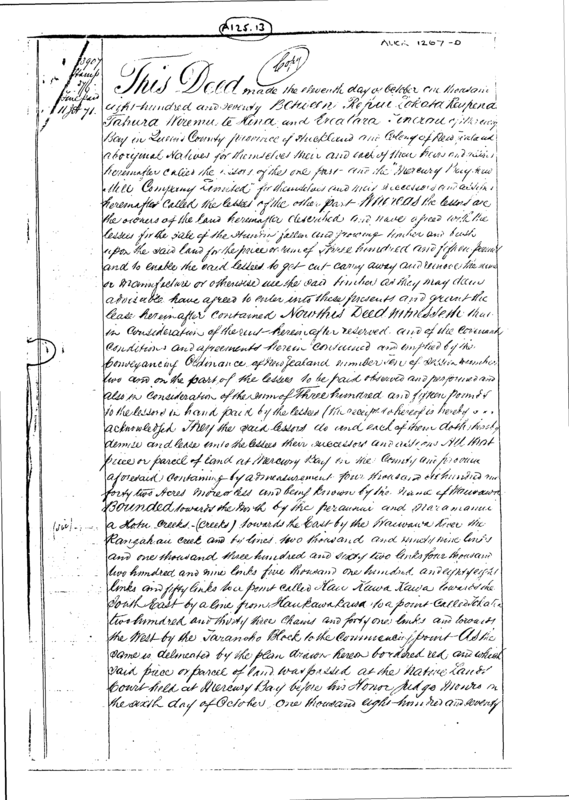 A125.13
AUCK 1267-D
Copy
3907
Stamp
This Deed made the eleventh day of October one thousand
eight hundred and seventy Between Repui Tokata Reupena
Tahura Weremu te Hena and of Mercury
Bay in Queens County province of Auckland and Colony of New Zealand
aboriginal Natives for themselves their and each of their heirs and
hereinafter called the lessors of the one part and the "Mercury Bay Saw
Mill Company Limited" for themselves and their successors and assigns
hereinafter called the lessees of the other part Whereas the lessors are
the owners of the land hereinafter described and have agreed with the
lessees for the sale of the fallen and growing timber and bush
upon the said land for the price or sum of Three hundred and fifteen pounds
and to enable the said lessees to get cut carry away and remove the same
or manufacture or otherwise use the said timber as they may deem
advisable have agreed to enter into these presents and grant the
lease hereinafter contained Now this Deed witnesseth that
in consideration of the rent hereinafter reserved and of the covenants
conditions and agreements herein contained and implied by the
Conveyancing Ordinance of New Zealand number ten of Session number
two and on the part of the lessees to be paid observed and performed and
also in consideration of the sum of Three hundred and fifteen pounds
to the lessors in hand paid by the lessees (the receipt whereof is hereby
acknowledged They the said lessors do and each of them doth hereby
demise and lease unto the lessees their successors and assigns All that
piece or parcel of land at Mercury Bay in the County and province
aforesaid containing by admeasurement four thousand six hundred and
forty two Acres more or less and being known by the name of
Bounded towards the North by the and
a Hotu Creeks - (Creeks) towards the East by the River the
Rangahau creek and by lines two thousand and ninety nine links
(sic)
and one thousand three hundred and sixty two links four thousand
two hundred and nine links five thousand one hundred and eighty eight
links and fifty links to a point called Hau Kawa Kawa towards the
South East by a line from Haukawakawa to a point called
two hundred and thirty three chains and forty one links and towards
the West by the Taranoho Block to the Commencing point As the
same is delineated by the plan drawn hereon bordered red and which
said piece or parcel of land was passed at the Native Lands
Court held at Mercury Bay before his Honor Judge Monro on
the sixth day of October one thousand eight hundred and seventy